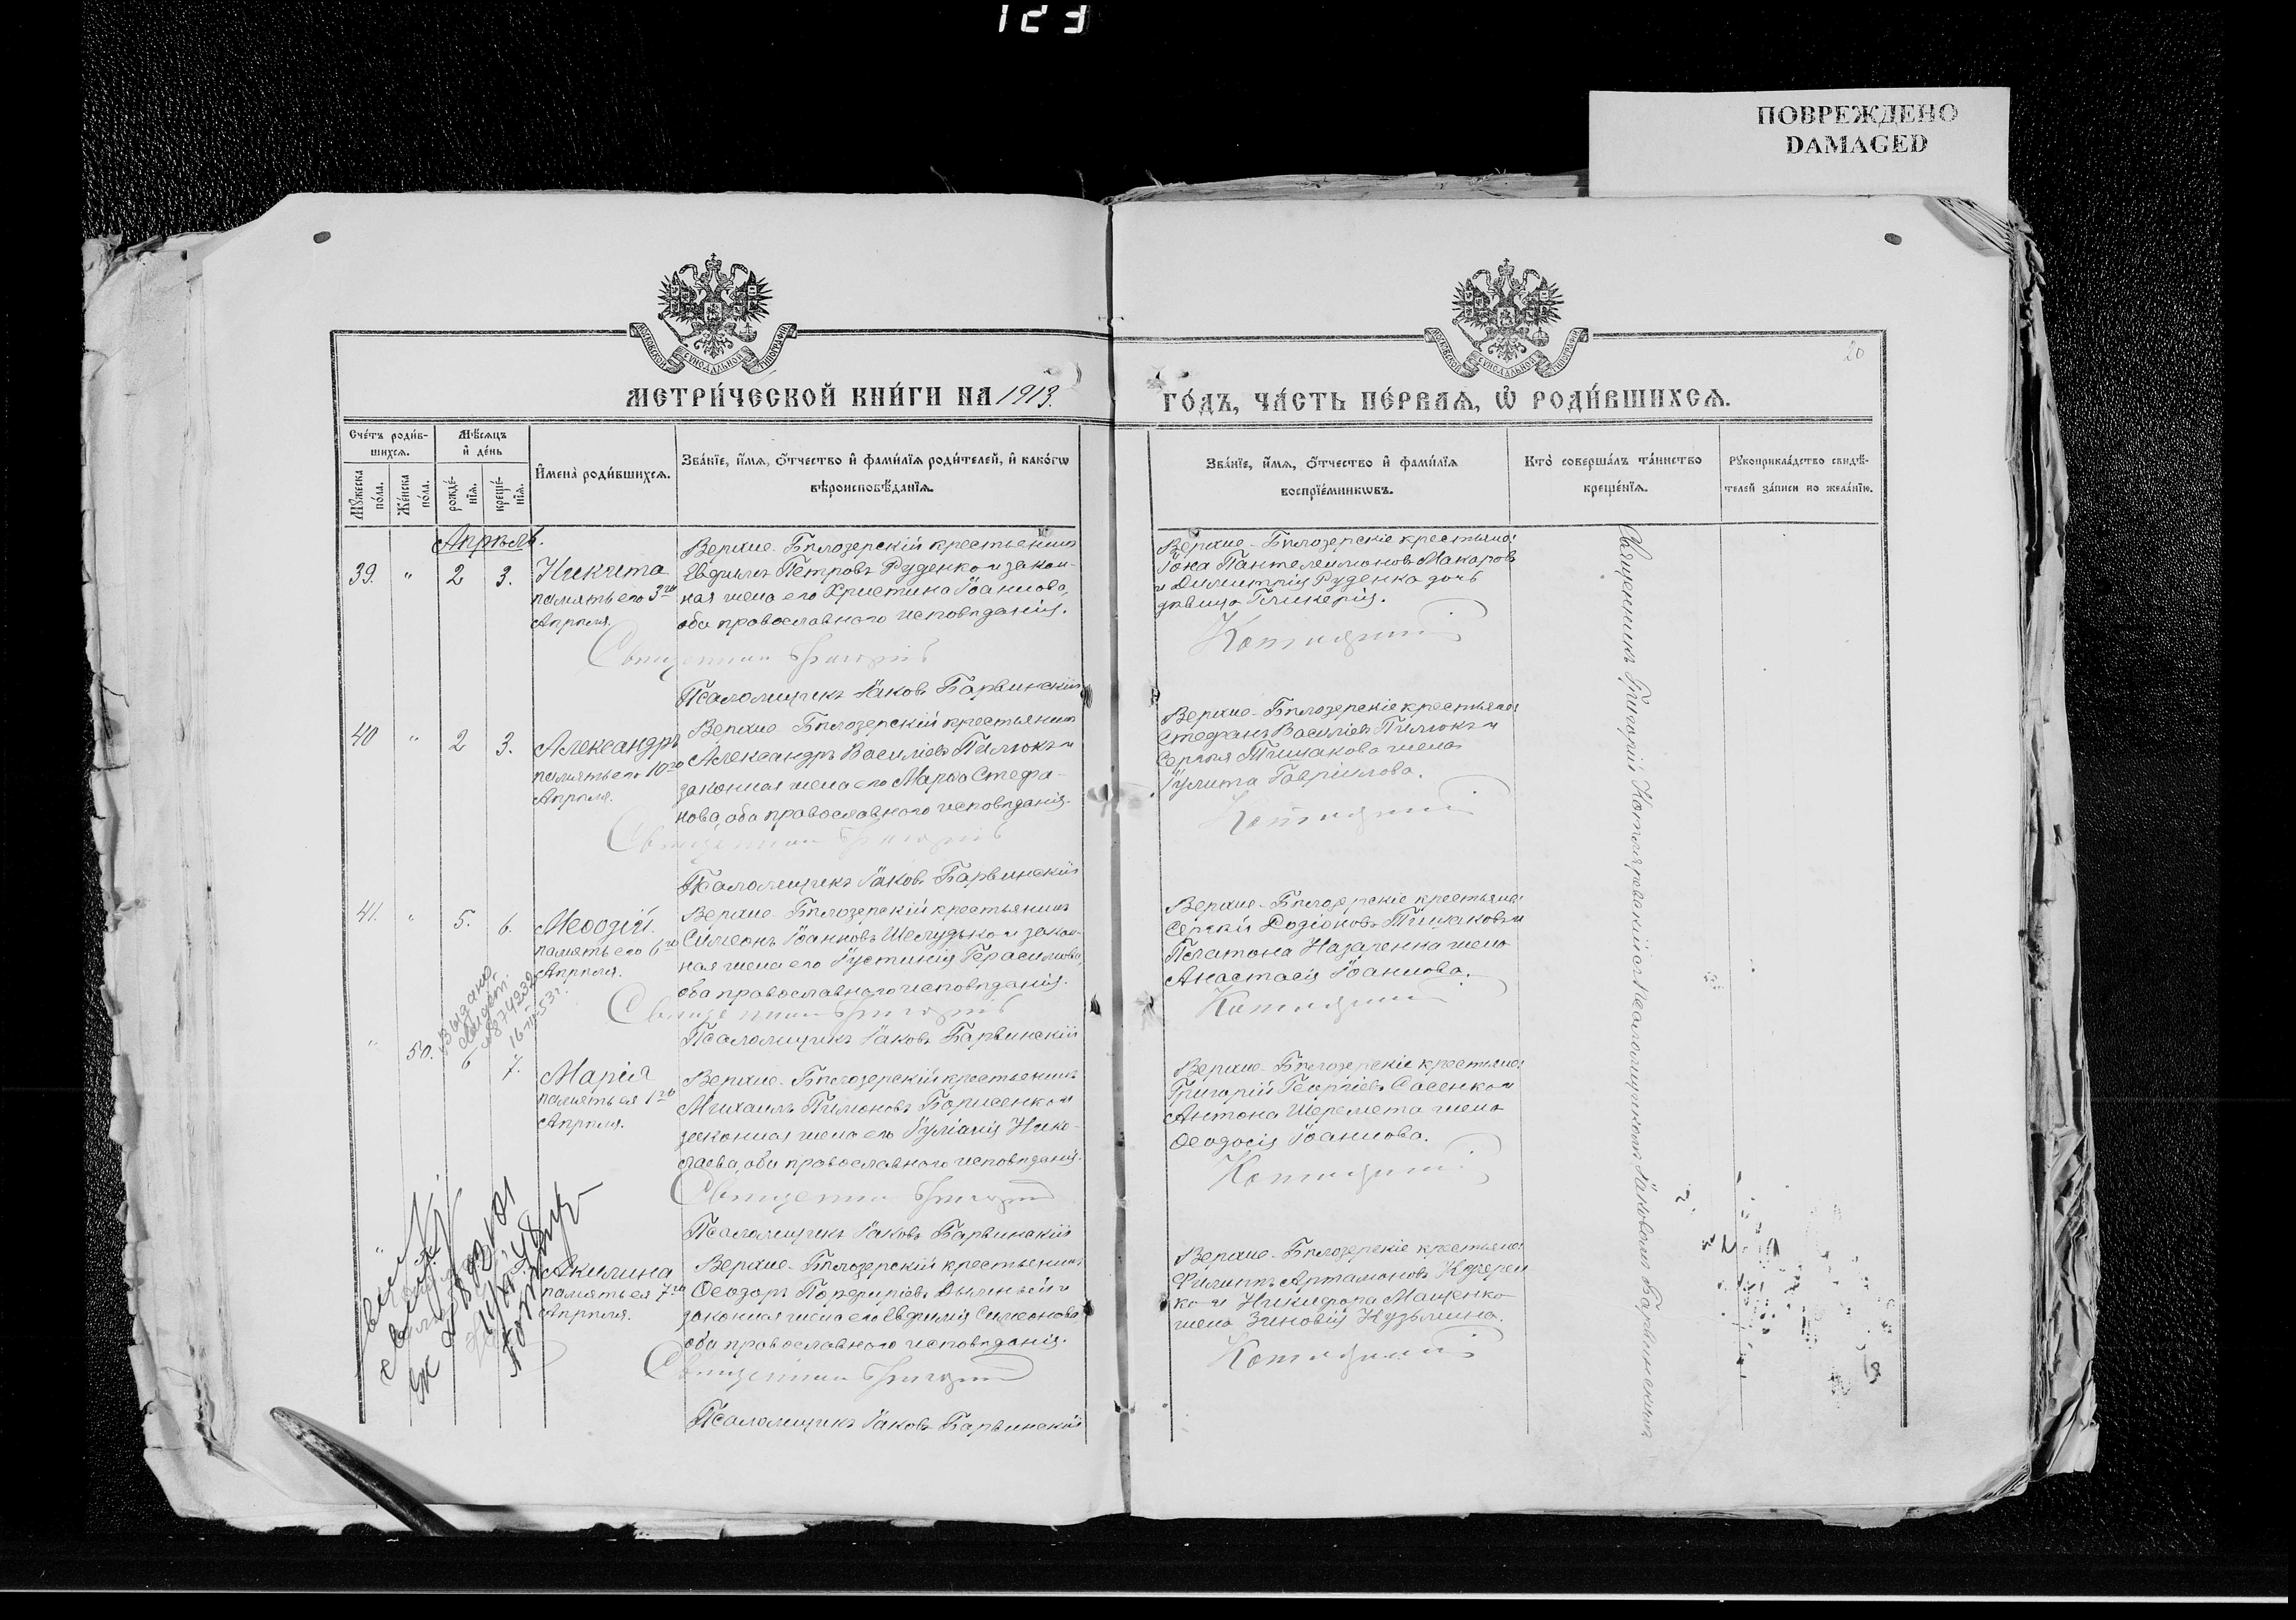 123
ПОВРЕЖДЕНО
DAMAGED
МОСКОВСКОЙ СУНОДАЛЬНОЙ ТИПОГРАФІИ
МОСКОВСКОЙ СУНОДАЛЬНОЙ ТИПОГРАФІИ
20
МЕТРИ́ЧЕСКОЙ КНИ́ГИ НА 1913.
ГО́ДЪ, ЧА́СТЬ ПЕ́РВАѦ, Ѡ҆ РОДИ́ВШИХСѦ.
Сче́тъ роди́в-
шихсѧ.
Мꙋ́жеска по́ла.
Же́нска по́ла.
Мѣ́сѧцъ
и҆ де́нь
рожде́-
нїѧ.
креще́-
нїѧ.
И҆мена̀ роди́вшихсѧ.
Зва́нїе, и҆́мѧ, ѻ҆́тчество и҆ фами́лїѧ роди́телей, и҆ како́гѡ
вѣроисповѣ́данїѧ.
Зва́нїе, и҆́мѧ, ѻ҆́тчество и҆ фами́лїѧ
воспрїе́мникѡвъ.
Кто̀ соверша́лъ та́инство
креще́нїѧ.
Рꙋкоприкла́дство свидѣ́-
телей за́писи по жела́нїю.
Апрѣль.
39. " 2 3.
Никита
память его 3го
Апрѣля.
Верхне-Бѣлозерскій крестьянинъ
Евфимъ Петровъ Руденко и закон-
ная жена его Христина Іоаннова,
оба православнаго исповѣданія.
Священникъ Григорій
Псаломщикъ Іаковъ Барвинскій
Верхне-Бѣлозерскіе крестьяне:
Іона Пантелеимоновъ Макаровъ
и Димитрія Руденка дочь
дѣвица Гликерія.
40 " 2 3.
Александръ
память его 10го
Апрѣля.
Верхне-Бѣлозерскій крестьянинъ
Александръ Василіевъ Пилюкъ и
законная жена его Марѳа Стефа-
нова, оба православнаго исповѣданія.
Священникъ Григорій
Псаломщикъ Іаковъ Барвинскій
Верхне-Бѣлозерскіе крестьяне:
Стефанъ Василіевъ Пилюкъ и
Сергѣя Тишакова жена
Іулита Гавріилова.
41. " 5. 6.
Меѳодій.
память его 6го
Апрѣля.
Верхне-Бѣлозерскій крестьянинъ
Симеонъ Іоанновъ Шелудько и закон-
ная жена его Іустинія Герасимова,
оба православнаго исповѣданія.
Священникъ Григорій
Псаломщикъ Іаковъ Барвинскій
Верхне-Бѣлозерскіе крестьяне:
Сергій Родіоновъ Тишаковъ и
Платона Назаренка жена
Анастасія Іоаннова.
Выдано
" 50. 6 7.
Марія
память ея 1го
Апрѣля.
Верхне-Бѣлозерскій крестьянинъ
Михаилъ Пимоновъ Борисенко и
законная жена его Іуліанія Нико-
лаева, оба православнаго исповѣданія.
Священникъ Григорій
Псаломщикъ Іаковъ Барвинскій
Верхне-Бѣлозерскіе крестьяне:
Григорій Георгіевъ Сасенко и
Антона Шеремета жена
Ѳеодосія Іоаннова.
Акилина
память ея 7го
Апрѣля.
Верхне-Бѣлозерскій крестьянинъ
Ѳеодоръ Порфиріевъ
законная жена его Евфимія Симеонова
оба православнаго исповѣданія.
Священникъ Григорій
Псаломщикъ Іаковъ Барвинскій
Верхне-Бѣлозерскіе крестьяне:
Филиппъ Артамоновъ
ко и Никифора Мащенко
жена Зиновія Кузьмина.
Священникъ Григорій Котляревскій съ псаломщикомъ Іаковомъ Барвинскимъ